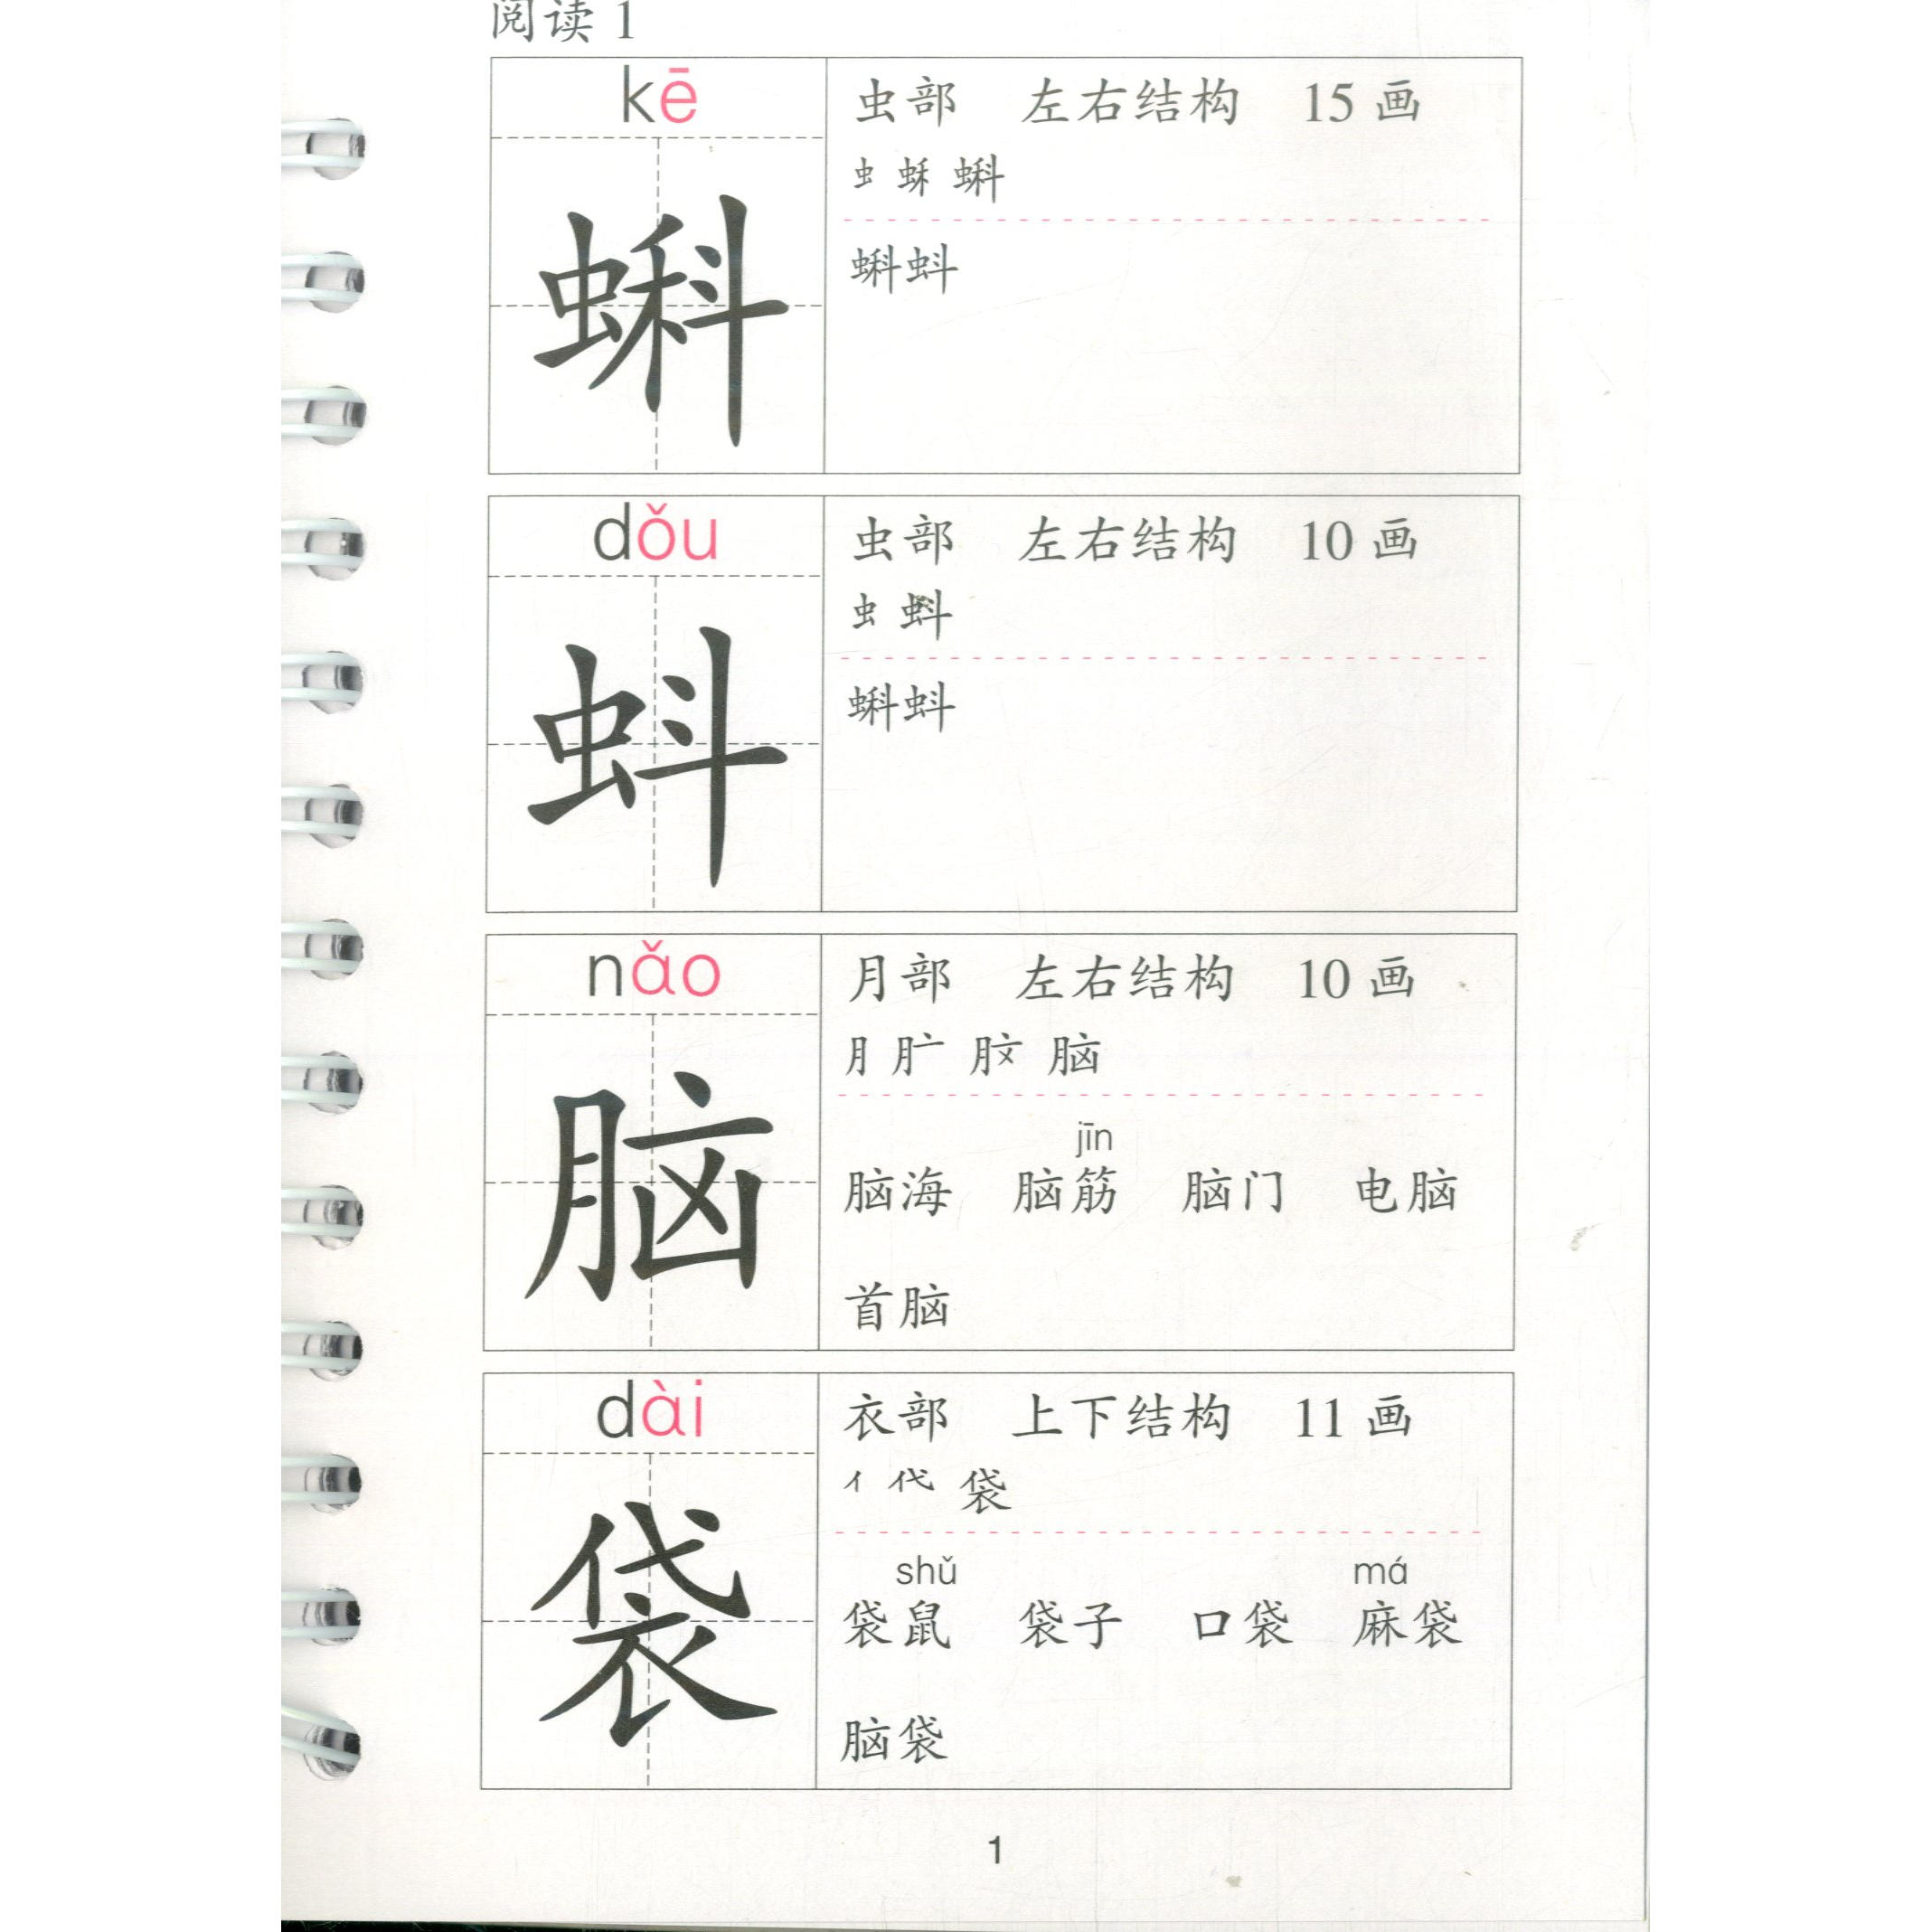 阅读 1
kē
虫部 左右结构 15 画
蝌
蝌蚪
蝌
dǒu
虫部 左右结构 10 画
蚪
蝌蚪
蚪
nǎo
月部 左右结构 10 画
脑
jīn
脑海 脑筋 脑门 电脑
首脑
脑
dài
衣部 上下结构 11 画
亻 代 袋
shǔ má
袋鼠 袋子 口袋 麻袋
脑袋
袋
1